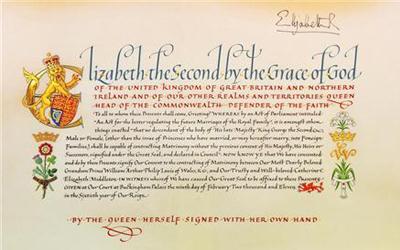 Elizabeth R
Elizabeth the Second by the Grace of God
OF THE UNITED KINGDOM OF GREAT BRITAIN AND NORTHERN
IRELAND AND OF OUR OTHER REALMS AND TERRITORIES QUEEN
HEAD OF THE COMMONWEALTH DEFENDER OF THE FAITH
To all to whom these Presents shall come, Greeting! WHEREAS by an Act of Parliament intituled
"An Act for the better regulating the future Marriages of the Royal Family", it is amongst other
things enacted "that no descendant of the body of His late Majesty King George the Second,
Male or Female, (other than the issue of Princesses who have married, or may hereafter marry, into Foreign
Families,) shall be capable of contracting Matrimony without the previous consent of His Majesty, His Heirs or
Successors, signified under the Great Seal, and declared in Council": NOW KNOW YE that We have consented
and do by these Presents signify Our Consent to the contracting of Matrimony between Our Most Dearly Beloved
Grandson Prince William Arthur Philip Louis of Wales, K.G., and Our Trusty and Well-beloved Catherine
Elizabeth Middleton. IN WITNESS whereof We have caused Our Great Seal to be affixed to these Presents.
GIVEN at Our Court at Buckingham Palace the ninth day of February Two Thousand and Eleven
in the sixtieth Year of Our Reign.
BY THE QUEEN HERSELF SIGNED WITH HER OWN HAND